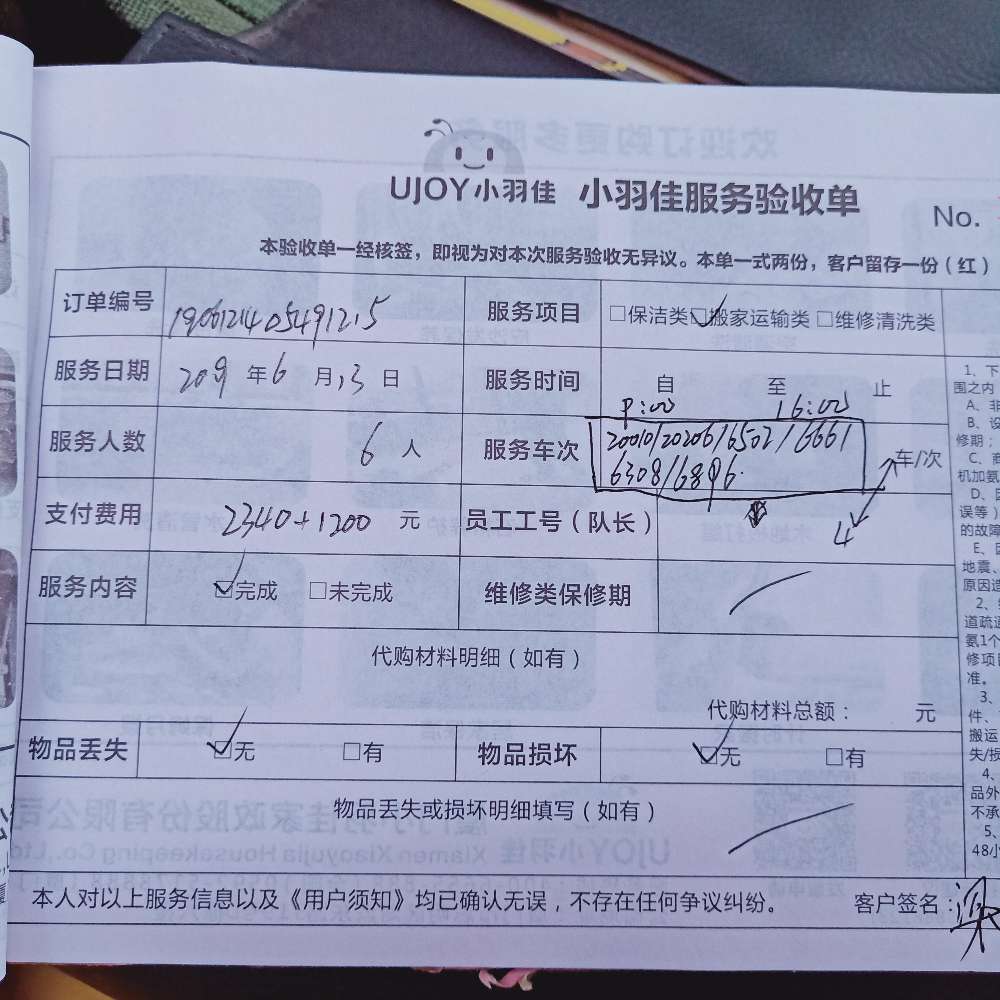 UJOY小羽佳 小羽佳服务验收单
No.
本验收单一经核签，即视为对本次服务验收无异议。本单一式两份，客户留存一份（红）
订单编号 190612140549121.5 服务项目 □保洁类 ☑搬家运输类 □维修清洗类
服务日期 2019 年 6 月 13 日 服务时间 自 至 止
16:00
服务人数 6 人 服务车次 20010/20206/6502/6661 车/次
6308/6896.
支付费用 2340+1200 元 员工工号（队长） 4
服务内容 ☑完成 □未完成 维修类保修期
代购材料明细（如有）
代购材料总额： 元
物品丢失 ☑无 □有 物品损坏 ☑无 □有
物品丢失或损坏明细填写（如有）
本人对以上服务信息以及《用户须知》均已确认无误，不存在任何争议纠纷。 客户签名：梁
1、下
围之内
A、非
B、设
修期；
C、商
机加氨
D、
误等）
的故障
E、因
地震、
原因造
2、
道疏通
氨1个
修项目
准。
3、
件、
搬运
失/损
4、
品外
不承
5、
48小